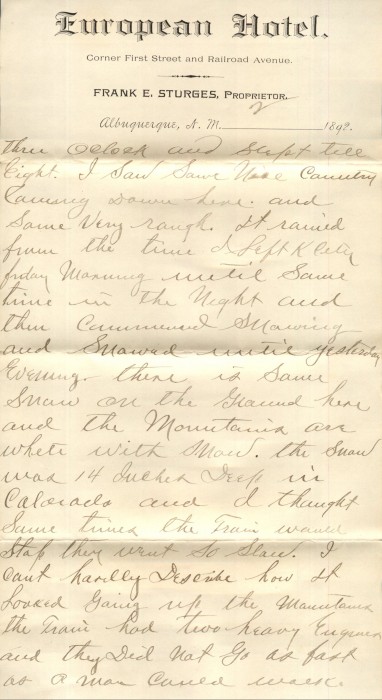 European Hotel.
Corner First Street and Railroad Avenue.
FRANK E. STURGES, PROPRIETOR.
2
Albuquerque, N. M. 189
three Oclock and Slept till
Eight. I Saw Some Nice Country
Coming Down here. and
Some Very rough. It rained
from the time I Left K City
friday Morning until Some
time in the Night and
then Commenced Snowing
and Snowed until yesterday
Evening. there is Some
Snow on the Ground here
and the Mountains are
white with Snow. the Snow
was 14 Inches Deep in
Colorado and I thought
Some times the Train would
Stop they went So Slow. I
cant hardly Describe how it
Looked Going up the Mountains
the Train had two heavy Engines
and they Did Not Go as fast
as a man could walk.